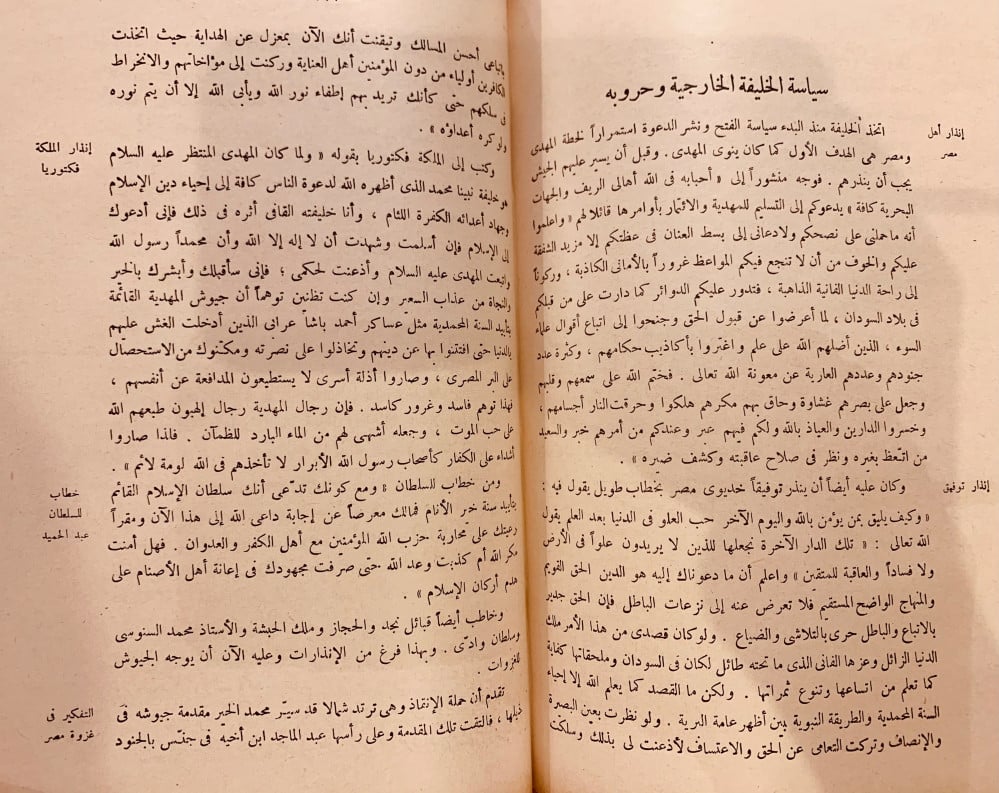 سياسة الخليفة الخارجية وحروبه
إنذار أهل
مصر
اتخذ الخليفة منذ البدء سياسة الفتح ونشر الدعوة استمراراً لخطة المهدى
ومصر هى الهدف الأول كما كان ينوى المهدى . وقبل أن يسير عليهم الجيش
يجب أن ينذرهم . فوجه منشوراً إلى « أحبابه فى الله أهالى الريف والجهات
البحرية كافة » يدعوكم إلى التسليم للمهدية والائتمار بأوامرها قائلا لهم « واعلموا
أنه ما حملنى على نصحكم ولا دعانى إلى بسط العنان فى عظتكم إلا مزيد الشفقة
عليكم والخوف من أن لا تنجع فيكم المواعظ غروراً بالأمانى الكاذبة ، وركوناً
إلى راحة الدنيا الفانية الذاهبة ، فتدور عليكم الدوائر كما دارت على من قبلكم
فى بلاد السودان ، لما أعرضوا عن قبول الحق وجنحوا إلى اتباع أقوال علماء
السوء ، الذين أضلهم الله على علم واغتروا بأكاذيب حكامهم ، وكثرة عدد
جنودهم وعددهم العارية عن معونة الله تعالى . فختم الله على سمعهم وقلبهم
وجعل على بصرهم غشاوة وحاق بهم مكرهم هلكوا وحرقت النار أجسامهم ،
وخسروا الدارين والعياذ بالله ولكم فيهم عبر وعندكم من أمرهم خبر والسعيد
من اتعظ بغيره ونظر فى صلاح عاقبته وكشف ضيره » .
إنذار توفيق
وكان عليه أيضاً أن ينذر توفيقاً خديوى مصر بخطاب طويل يقول فيه :
« وكيف يليق بمن يؤمن بالله واليوم الآخر حب العلو فى الدنيا بعد العلم يقول
الله تعالى : « تلك الدار الآخرة نجعلها للذين لا يريدون علواً فى الأرض
ولا فساداً والعاقبة للمتقين » واعلم أن ما دعوناك إليه هو الدين الحق القويم
والمنهاج الواضح المستقيم فلا تعرض عنه إلى نزعات الباطل فإن الحق جدير
بالاتباع والباطل حرى بالتلاشى والضياع . ولو كان قصدى من هذا الأمر ملك
الدنيا الزائل وعزها الفانى الذى ما تحته طائل لكان فى السودان وملحقاتها كفاية
كما تعلم من اتساعها وتنوع ثمراتها . ولكن ما القصد كما يعلم الله إلا إحياء
السنة المحمدية والطريقة النبوية بين أظهر عامة البرية . ولو نظرت بعين البصيرة
والإنصاف وتركت التعامى عن الحق والاعتساف لأذعنت لى بذلك وسلكت
باتباعى أحسن المسالك وتيقنت أنك الآن بمعزل عن الهداية حيث اتخذت
الكافرين أولياء من دون المؤمنين أهل العناية وركنت إلى مؤاخاتهم والانخراط
فى سلكهم حتى كأنك تريد بهم إطفاء نور الله ويأبى الله إلا أن يتم نوره
ولو كره أعداؤه » .
إنذار الملكة
فكتوريا
وكتب إلى الملكة فكتوريا بقوله « ولما كان المهدى المنتظر عليه السلام
هو خليفة نبينا محمد الذى أظهره الله لدعوة الناس كافة إلى إحياء دين الإسلام
وجهاد أعدائه الكفرة اللئام ، وأنا خليفته القافى أثره فى ذلك فإنى أدعوك
إلى الإسلام فإن أسلمت وشهدت أن لا إله إلا الله وأن محمداً رسول الله
واتبعت المهدى عليه السلام وأذعنت لحكمى ؛ فإنى سأقبلك وأبشرك بالخير
والنجاة من عذاب السعير وإن كنت تظنين توهماً أن جيوش المهدية القائمة
بتأييد السنة المحمدية مثل عساكر أحمد باشا عرابى الذين أدخلت الغش عليهم
بالدنيا حتى افتتنوا بها عن دينهم وتخاذلوا على نصرته ومكنوك من الاستحصال
على البر المصرى ، وصاروا أذلة أسرى لا يستطيعون المدافعة عن أنفسهم ،
فهذا توهم فاسد وغرور كاسد . فإن رجال المهدية رجال إلهيون طبعهم الله
على حب الموت ، وجعله أشهى لهم من الماء البارد للظمآن . فلذا صاروا
أشداء على الكفار كأصحاب رسول الله الأبرار لا تأخذهم فى الله لومة لائم » .
خطاب
للسلطان
عبد الحميد
ومن خطاب للسلطان « ومع كونك تدعى أنك سلطان الإسلام القائم
بتأييد سنة خير الأنام فمالك معرضاً عن إجابة داعى الله إلى هذا الآن ومقراً
رعيتك على محاربة حزب الله المؤمنين مع أهل الكفر والعدوان . فهل أمنت
مكر الله أم كذبت وعد الله حتى صرفت مجهودك فى إعانة أهل الأصنام على
هدم أركان الإسلام » .
وخاطب أيضاً قبائل نجد والحجاز وملك الحبشة والأستاذ محمد السنوسى
وسلطان وادى . وبهذا فرغ من الإنذارات وعليه الآن أن يوجه الجيوش
للغزوات .
التفكير فى
غزوة مصر
تقدم أن حملة الإنقاذ وهى ترتد شمالا قد سير محمد الخير مقدمة جيوشه فى
ذيلها ، فالتقت تلك المقدمة وعلى رأسها عبد الماجد ابن أخيه فى جنس بالجنود